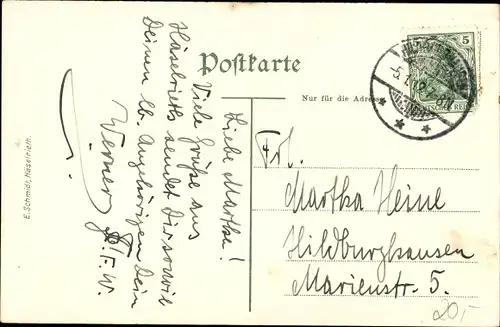 Postkarte
Nur für die Adresse
5
Liebe Martha!
Viele Grüße aus
Häselrieth sendet Dir sowie
Deinen lb. Angehörigen Dein
Werner
Frl.
Martha Heine
Hildburghausen
Marienstr. 5.
20,-
E. Schmidt, Häselrieth.